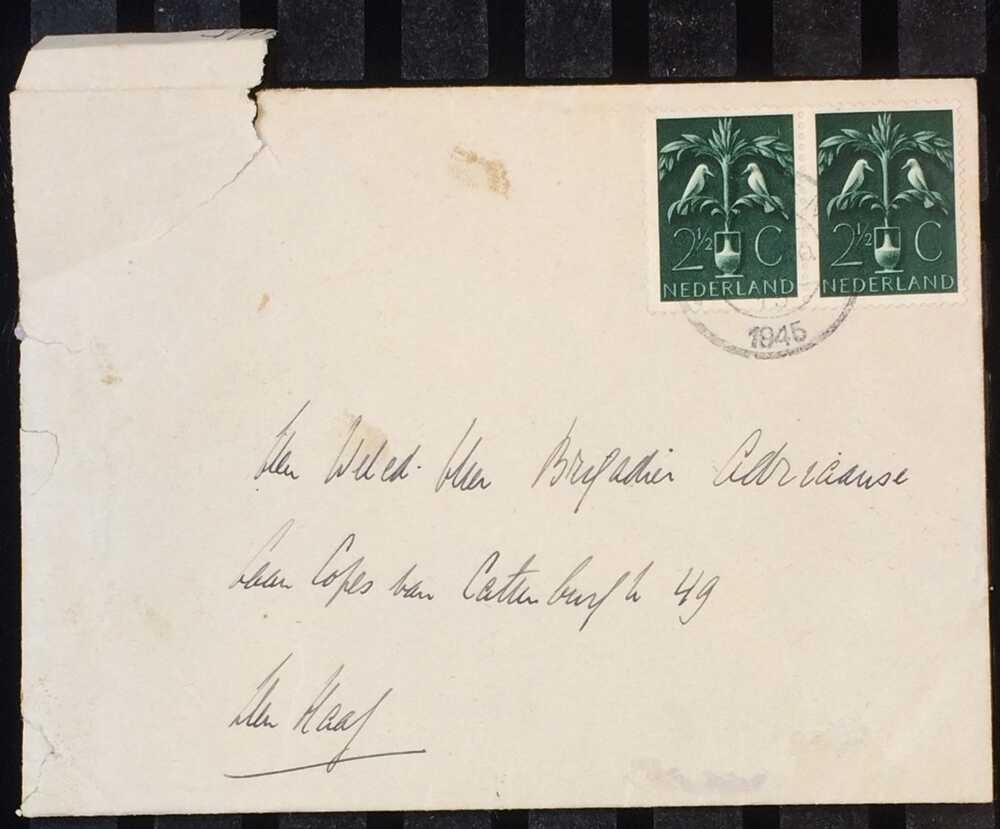 2½ C 2½ C
NEDERLAND NEDERLAND
1945
Den Weled. Heer Brigadier Adriaanse
Laan Copes van Cattenburgh 49
Den Haag